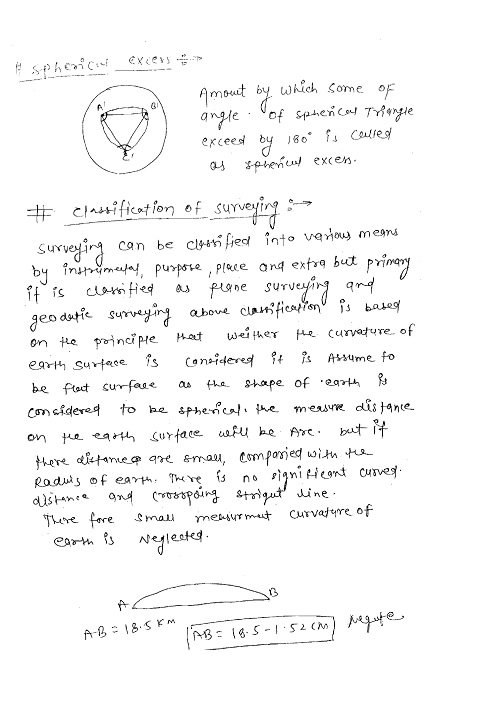 # Spherical excess :→
A' B'
C'
Amout by which some of
angle. of spherical Triangle
exceed by 180° is called
as spherical excess.
# classification of surveying :→
surveying can be clssified into various means
by instrumetal, purpose, place and extra but primary
it is classified as plane surveying and
geodatic surveying above classification is based
on the principle that weither the curvature of
earth surface is considered it is Assume to
be flat surface as the shape of earth is
considered to be spherical. the measure distance
on the earth surface will be Arc. but if
there distances are small, comparied with the
Radius of earth. There is no significent curved.
distance and straigut line.
There fore small measurmut curvature of
earth is Neglected.
A B
A-B = 18.5 KM
AB = 18.5 - 1.52 CM